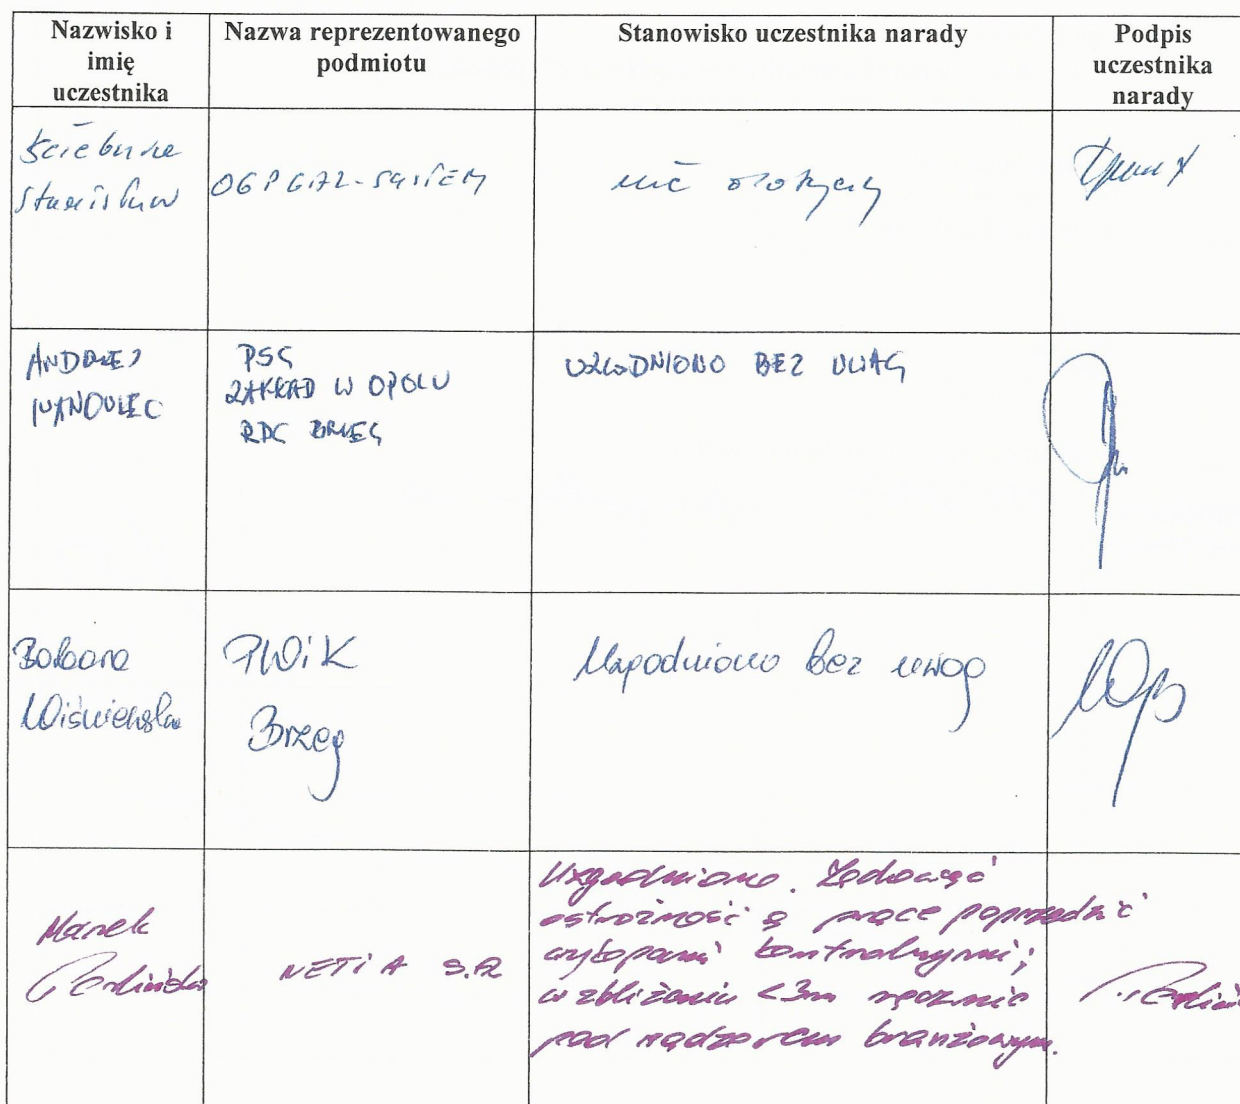 Nazwisko i
imię
uczestnika
Nazwa reprezentowanego
podmiotu
Stanowisko uczestnika narady
Podpis
uczestnika
narady
Stanisław
OGP GAZ-SYSTEM
nie dotyczy
ANDRZEJ
PSG
ZAKŁAD W OPOLU
RDG BRZEG
UZGODNIONO BEZ UWAG
Barbara
Wiśniewska
PWiK
Brzeg
Uzgodniono bez uwag
Marek
NETIA S.A
Uzgodniono. Zachować
ostrożność a prace poprzedzić
wykopami kontrolnymi;
w zbliżeniu <3m ręcznie
pod nadzorem branżowym.